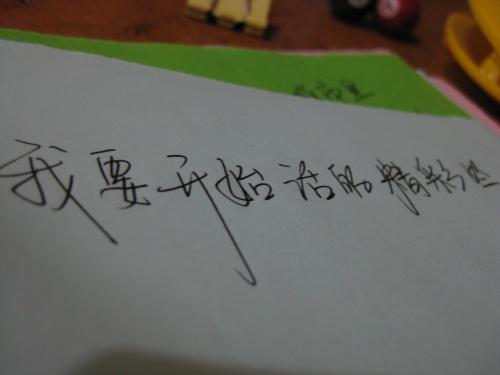 我要开始活的精彩些